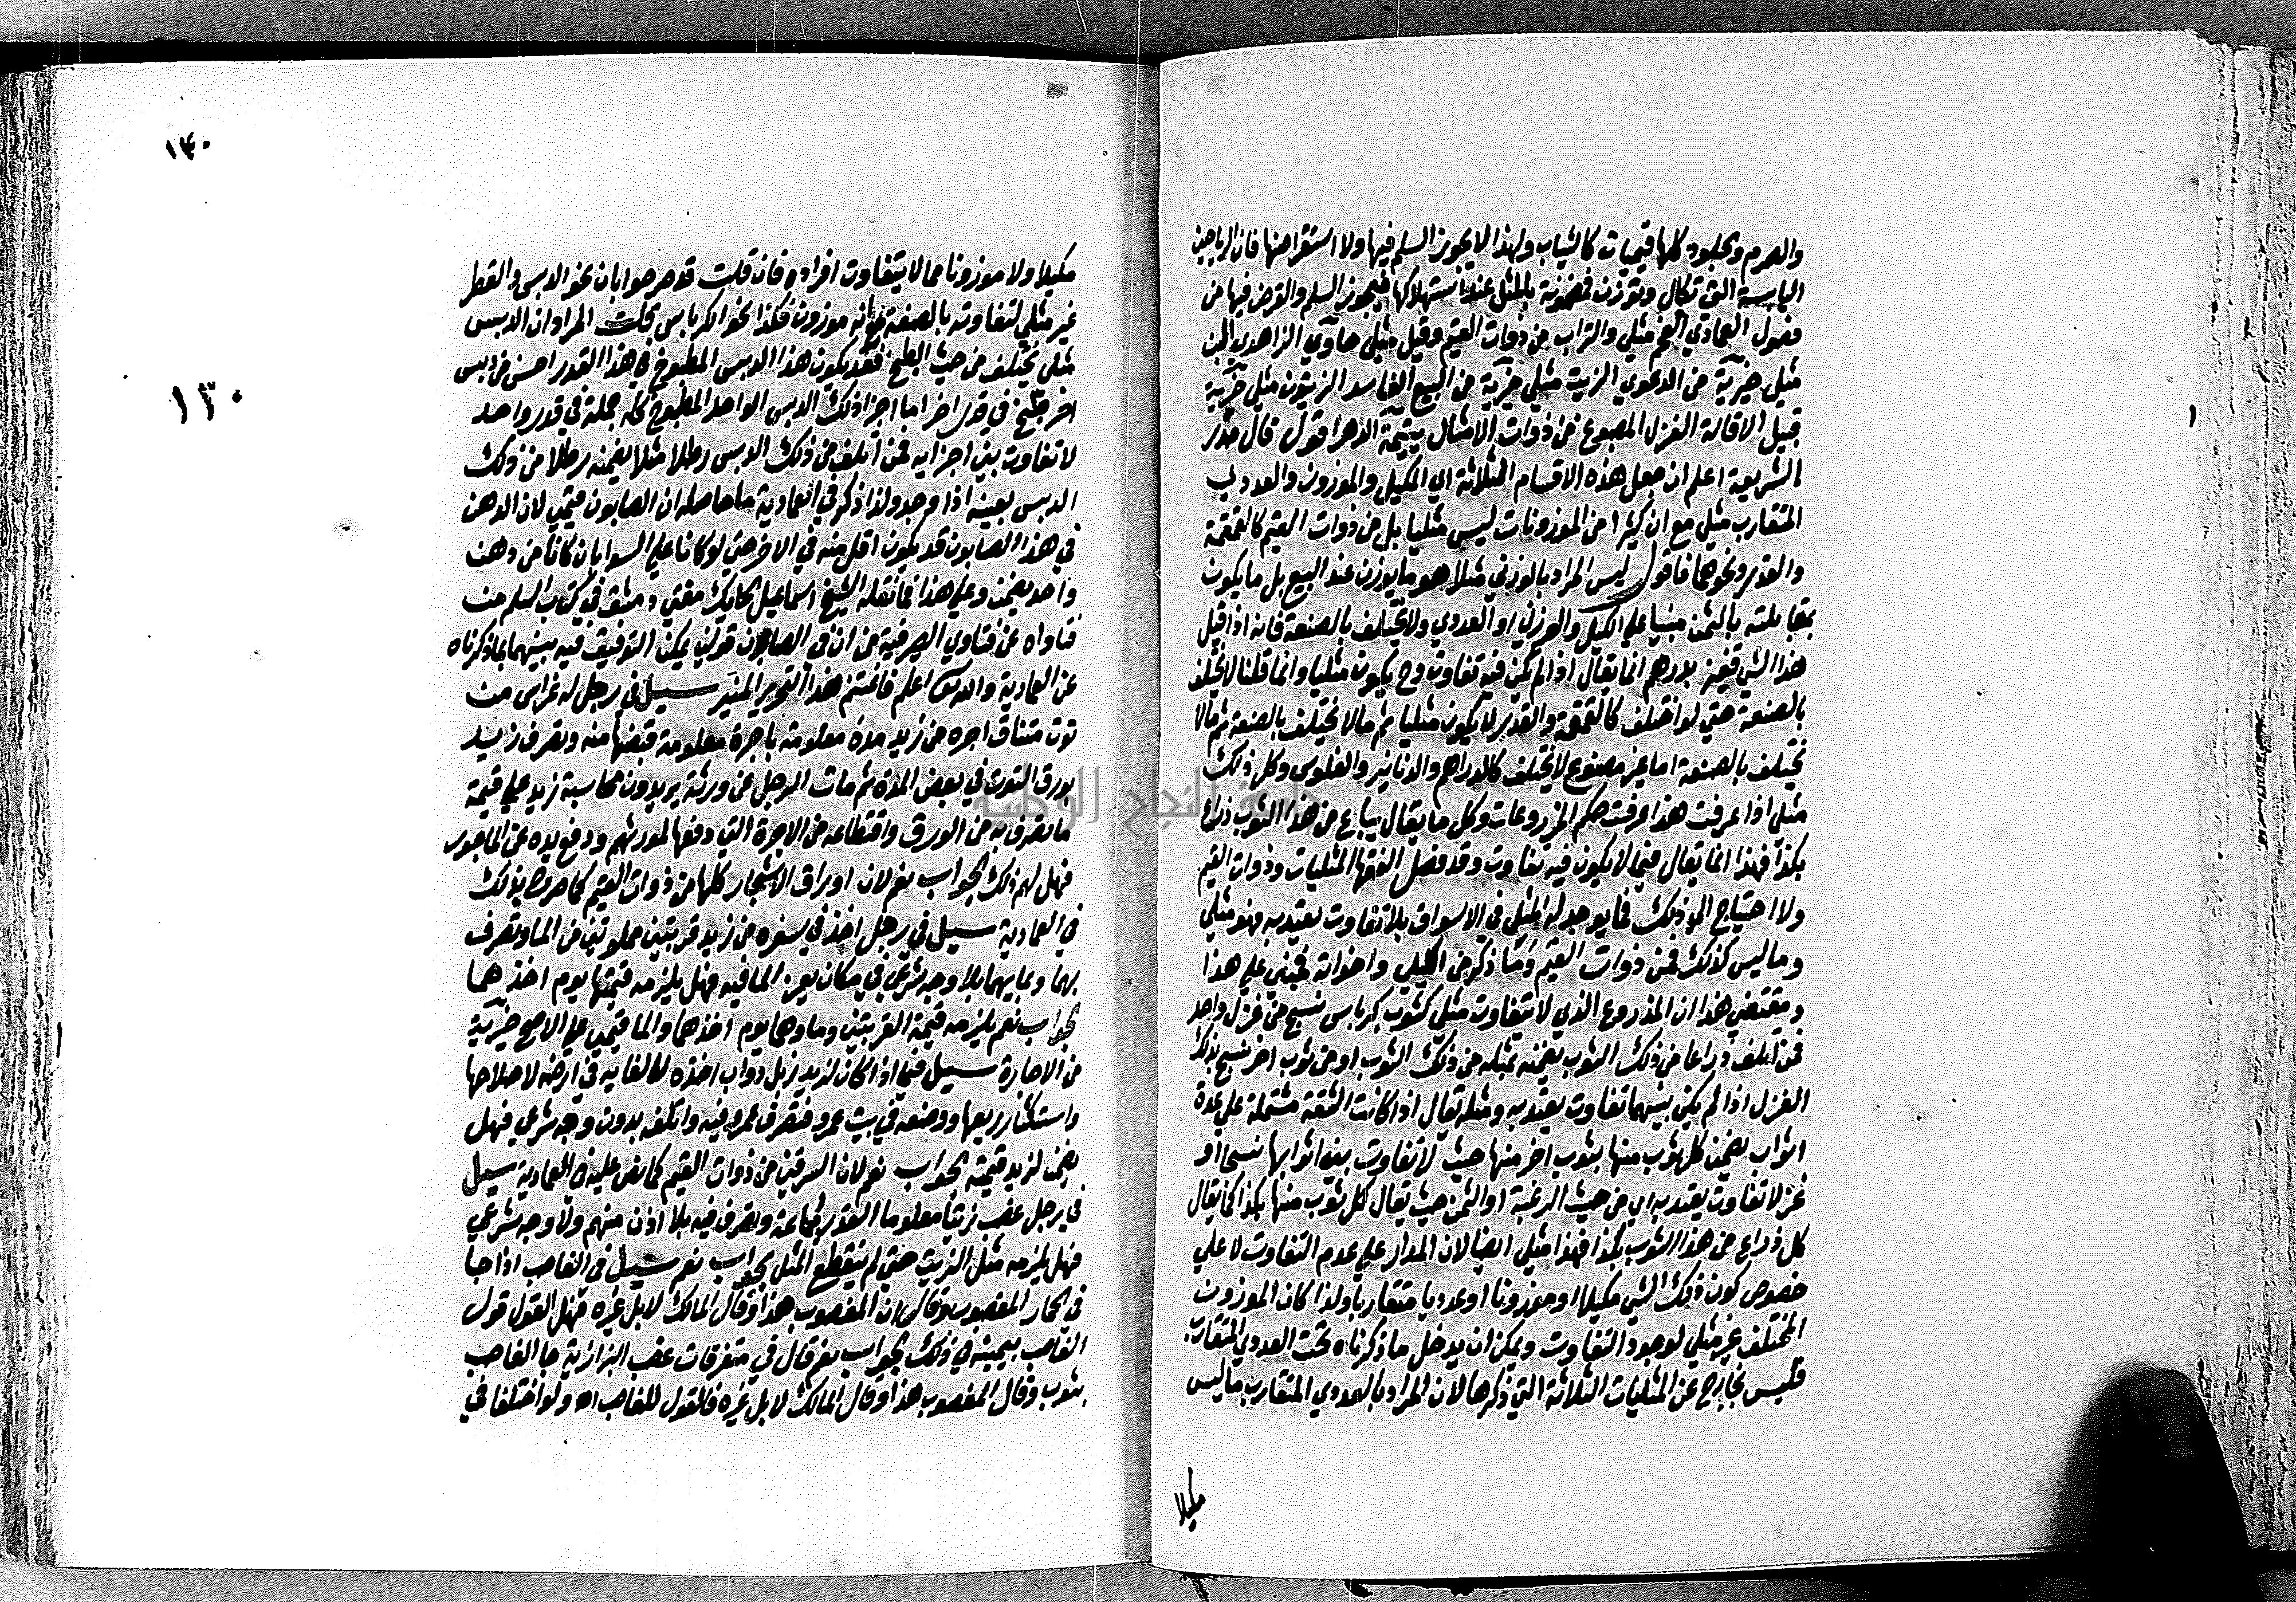 والصرم والجلود كلها قيميات كالثياب ولهذا لا يجوز السلم فيها ولا استقراضها فان الرياحين
اليابسة التي تكال وتوزن فمضمونة بالمثل عند استهلاكها فيجوز السلم والقرض فيها من
فصول العمادي الفحم مثلي والتراب من ذوات القيم وقيل مثلي حاوي الزاهدي الجبن
مثلي خيرية من الدعوي الزيت مثلي خيرية من البيع الفاسد الزيتون مثلي خيرية
قبيل الاقالة الغزل المصبوغ من ذوات الامثال يتيمة الدهر اقول قال صدر
الشريعة اعلم ان جعل هذه الاقسام الثلاثة اي المكيل والموزون والعددي
المتقارب مثلي مع ان كثيرا من الموزونات ليس مثليا بل من ذوات القيم كالقمقمة
والقدر ونحوهما فاقول ليس المراد بالوزني مثلا هو ما يوزن عند البيع بل ما يكون
مقابلته بالثمن مبنيا علي الكيل والوزن او العددي ولا يختلف بالصنعة فانه اذا قيل
هذا الشي قفيز بدرهم انما يقال اذا لم يكن فيه تفاوت وح يكون مثليا وانما قلنا لا يختلف
بالصنعة حتي لو اختلف كالقمقمة والقدر لا يكون مثليا ثم ما لا يختلف بالصنعة ثم ما لا
يختلف بالصنعة اما غير مصنوع لا يختلف كالدراهم والدنانير والفلوس وكل ذلك
مثلي اذا عرفت هذا عرفت حكم المذروعات وكل ما يقال يباع من هذا الثوب ذراع
بكذا فهذا انما يقال فيما لا يكون فيه تفاوت وقد فصل الفقها المثليات وذوات القيم
ولا احتياج الي ذلك فما يوجد له المثل في الاسواق بلا تفاوت يعتد به فهو مثلي
وما ليس كذلك فمن ذوات القيم وما ذكر من الكيلي واخواته فمبني علي هذا
ومقتضي هذا ان المذروع الذي لا يتفاوت مثلي كثوب كرباس نسج من غزل واحد
فمن اتلف ذراعا من ذلك الثوب يضمنه بمثله من ذلك الثوب او من ثوب اخر نسج بذلك
الغزل اذا لم يكن بينهما تفاوت يعتد به ومثله يقال اذا كانت الشقة مشتملة علي عدة
اثواب يضمن كل ثوب منها بثوب اخر منها حيث لا تفاوت بين اثوابها نسجا او
غزلا تفاوت يعتد به اي من حيث الرغبة او الثمن حيث يقال كل ثوب منها بكذا كما يقال
كل ذراع من هذا الثوب بكذا فهذا مثلي ايضا لان المدار علي عدم التفاوت لا علي
خصوص كون ذلك الشي مكيلا او موزونا او عدديا متقاربا ولذا كان الموزون
المختلف غير مثلي لوجود التفاوت ويمكن ان يدخل ما ذكرناه تحت العددي المتقارب
فليس بخارج عن المثليات الثلاثة التي ذكرها لان المراد بالعددي المتقارب ما ليس
مكيلا
١٤٠
١٣٠
مكيلا ولا موزونا مما لا يتفاوت افراده فان قلت قد صرحوا بان نحو الدبس والقطر
غير مثلي لتفاوته بالصنعة مع انه موزون فكذا نحو الكرباس قلت المراد ان الدبس
مثلي يختلف من حيث الطبخ فقد يكون هذا الدبس المطبوخ في هذا القدر احسن من دبس
اخر طبخ في قدر اخر اما اجزا ذلك الدبس الواحد المطبوخ كله جملة في قدر واحد
لا تفاوت بين اجزايه فمن اتلف من ذلك الدبس رطلا مثلا يضمنه رطلا من ذلك
الدبس بعينه اذا وجد ولذا ذكر في العمادية ما حاصله ان الصابون قيمي لان الدهن
في هذا الصابون قد يكون اقل منه في الاخر حتي لو كانا علي السوا بان كانا من دهن
واحد يضمن وعلي هذا فما نقله الشيخ اسماعيل الحايك مفتي دمشق في كتاب السلم من
فتاواه عن فتاوي الصيرفية من ان في الصابون قولين يمكن التوفيق فيه بينهما بما ذكرناه
عن العمادية والله اعلم فاغتنم هذا التحرير المنير سيل في رجل له غراس من
توت متناق اجره من زيد مدة معلومة باجرة معلومة قبضها منه وتصرف زيد
بورق التوت في بعض المدة ثم مات الرجل عن ورثة يريدون محاسبة زيد علي قيمة
ما تصرف به من الورق واقتطاعه من الاجرة التي دفعها لمورثهم ودفع يده عن الماجور
فهل لهم ذلك الجواب نعم لان اوراق الاشجار كلها من ذوات القيم كما صرح بذلك
في العمادية سيل في رجل اخذ في سفره من زيد قربتين مملوتين من الما وتصرف
بهما وبمايهما بلا وجه شرعي في مكان يعز الما فيه فهل يلزمه قيمتها يوم اخذهما
الجواب نعم يلزمه قيمة القربتين وماوهما يوم اخذهما والما قيمي علي الاصح خيرية
من الاجارة سيل فيما اذا كان لزيد زبل دواب اخذه لالقايه في ارضه لاصلاحها
واستكثار ريعها ووضعه في بيت عمرو فتصرف عمرو فيه واتلفه بدون وجه شرعي فهل
يضمن لزيد قيمته الجواب نعم لان السرقين من ذوات القيم كما نص عليه في العمادية سيل
في رجل غصب زيتا معلوما القدر لجماعة وتصرف فيه بلا اذن منهم ولا وجه شرعي
فهل يلزمه مثل الزيت حتي لم ينقطع المثل الجواب نعم سيل في الغاصب اذا جا
في الحمار المغصوب وقال ان المغصوب هذا وقال المالك لا بل غيره فهل القول قول
الغاصب بيمينه في ذلك الجواب نعم قال في متفرقات غصب البزازية جا الغاصب
بثوب وقال المغصوب هذا وقال المالك لا بل غيره فالقول للغاصب اه ولو اختلفا في